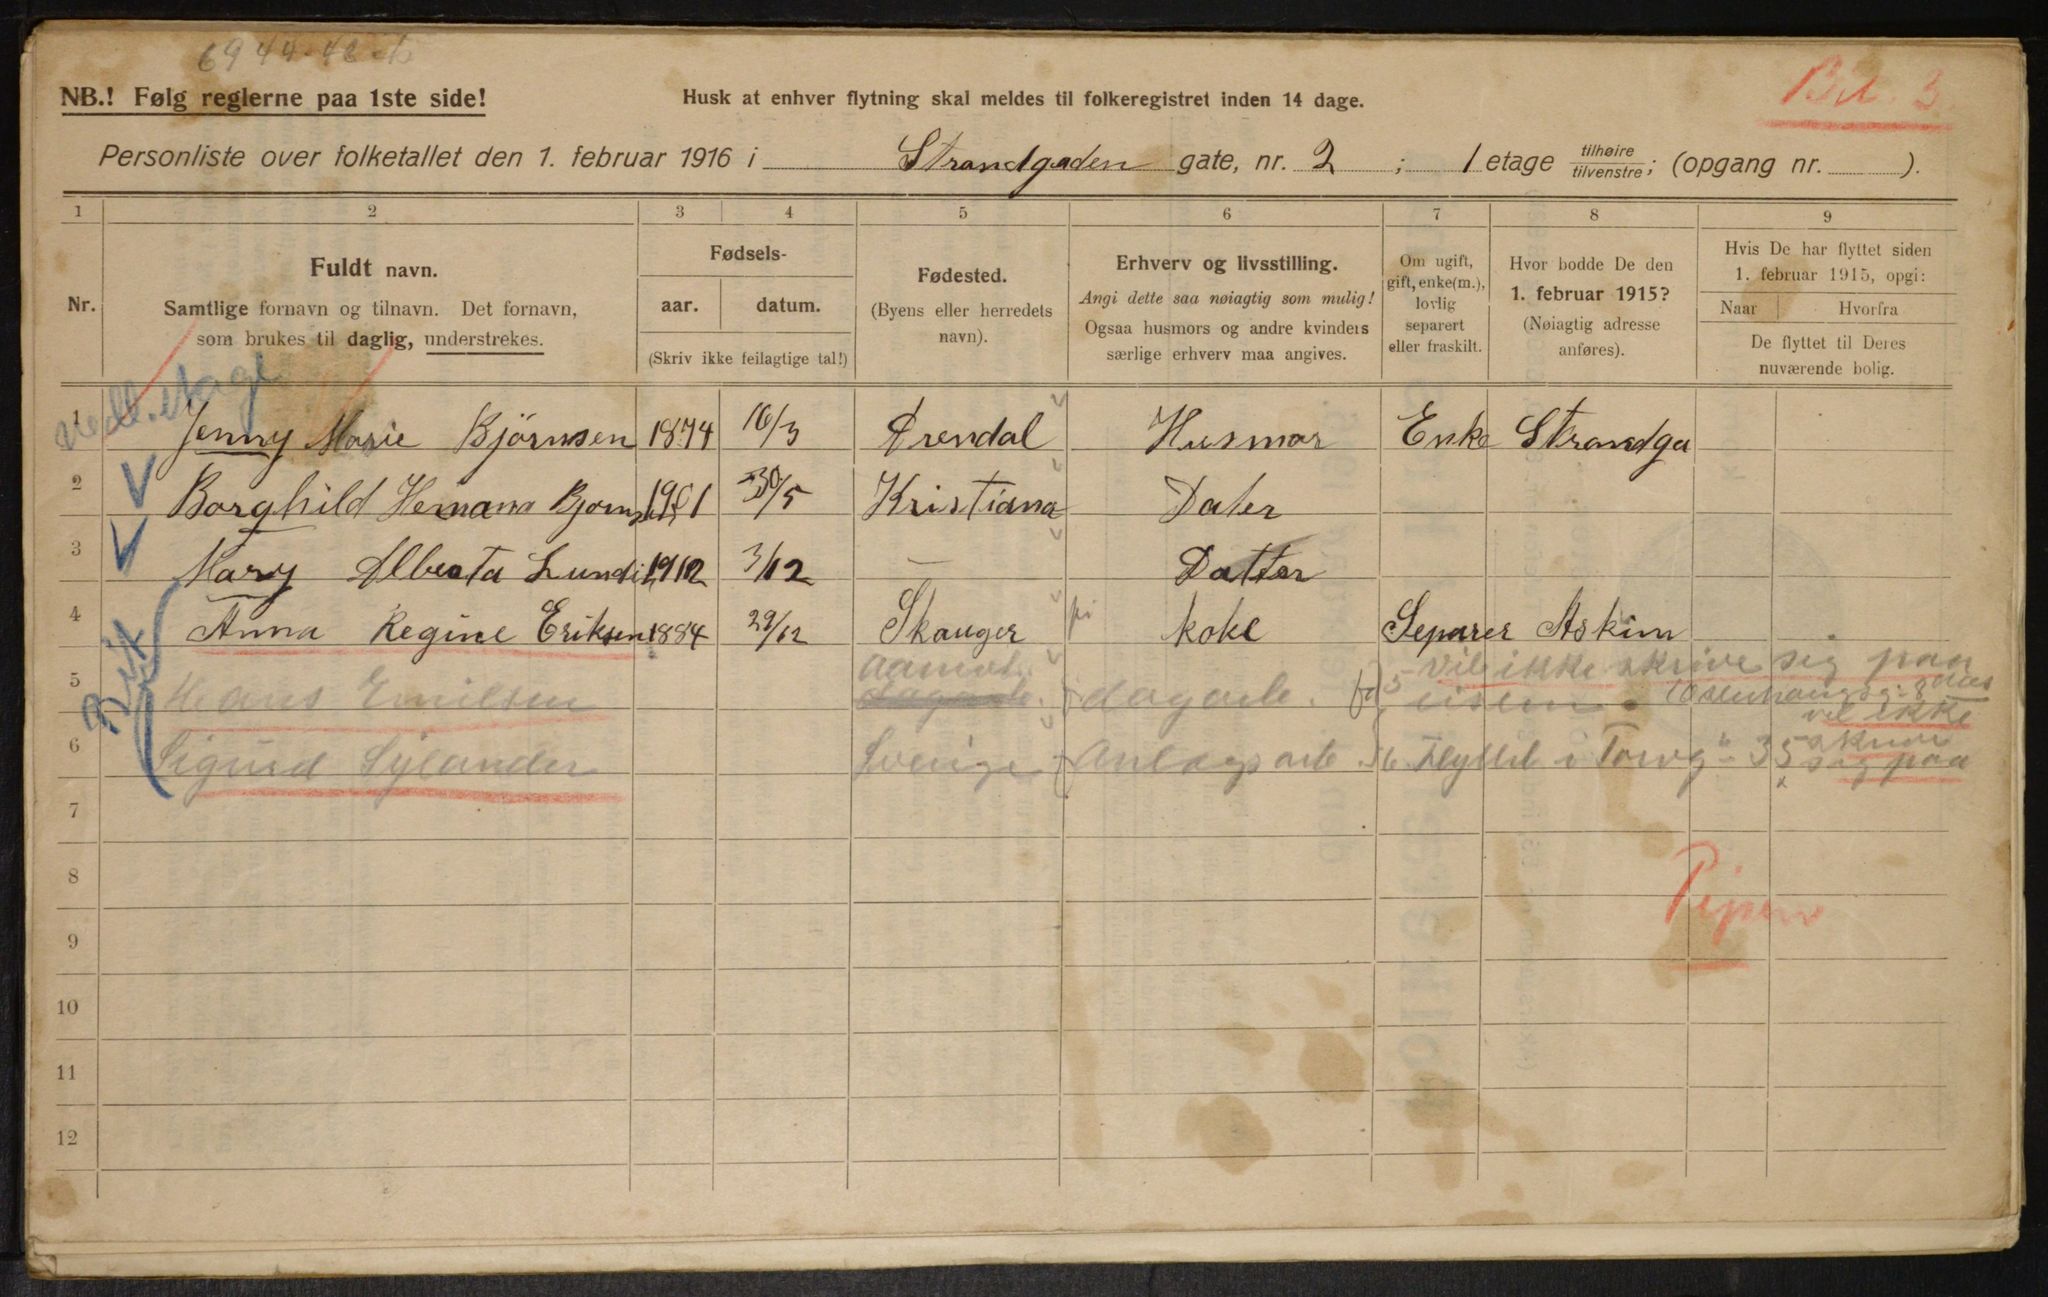 NB.! Følg reglerne paa 1ste side!
Husk at enhver flytning skal meldes til folkeregistret inden 14 dage.
Personliste over folketallet den 1. februar 1916 i Strandgaden gate, nr. 2 ; 1 etage tilhøire/tilvenstre; (opgang nr. ).
1 2 3 4 5 6 7 8 9
Nr.
Fuldt navn.
Samtlige fornavn og tilnavn. Det fornavn,
som brukes til daglig, understrekes.
Fødsels-
aar. datum.
(Skriv ikke feilagtige tal!)
Fødested.
(Byens eller herredets
navn).
Erhverv og livsstilling.
Angi dette saa nøiagtig som mulig!
Ogsaa husmors og andre kvinders
særlige erhverv maa angives.
Om ugift,
gift, enke(m.),
lovlig
separert
eller fraskilt.
Hvor bodde De den
1. februar 1915?
(Nøiagtig adresse
anføres).
Hvis De har flyttet siden
1. februar 1915, opgi:
Naar Hvorfra
De flyttet til Deres
nuværende bolig.
1 Jenny Marie Björnsen 1874 16/3 Arendal Husmor Enke Strandga
2 Borghild Hemana Bjorns 1901 30/5 Kristiana Dater
3 Mary Alberta Lundi 1912 3/12 — Datter
4 Anna Regine Eriksen 1884 29/12 Skauger koke Separer Askim
5 Hans Emilsen Aamot dagarb. vil ikke skrive sig paa
6 Sigurd Sylander Sverige Anlægsarb. Flyttet i Torvg 35 vil ikke skrive sig paa
7
8
9
10
11
12